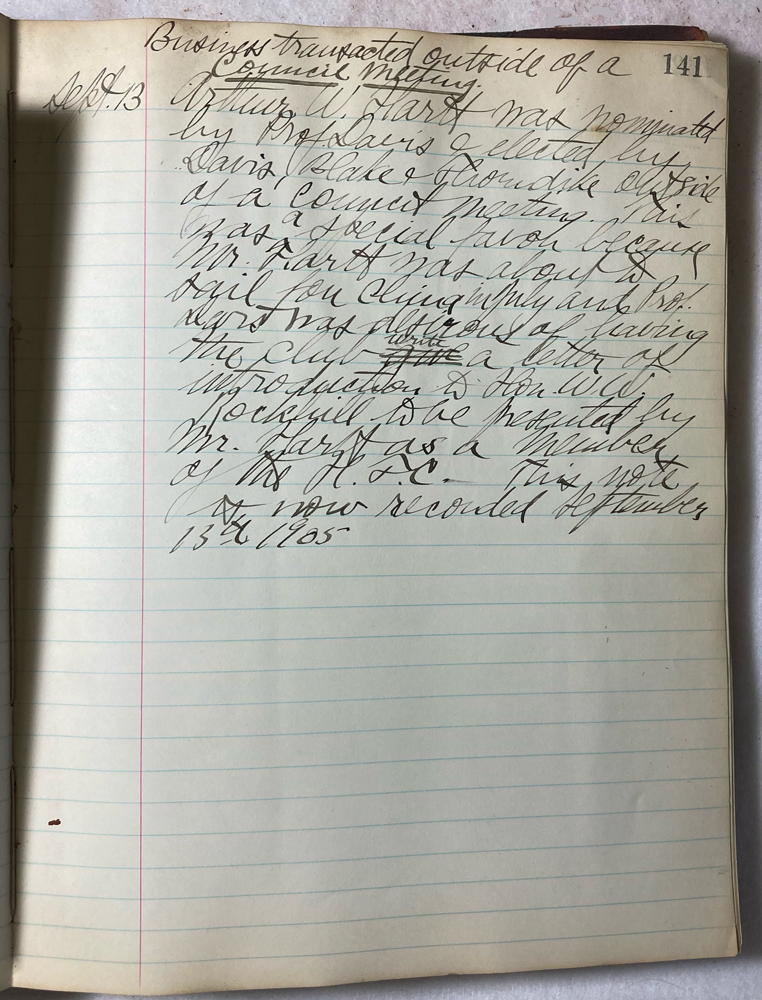 Business transacted outside of a
Council Meeting.
141
Sept. 13
Arthur W. was nominated
by Prof. Davis & elected by
Davis, Blake & Thorndike outside
of a council meeting. This
was a special favor because
Mr. was about to
sail for China in July and Prof.
Davis was desirous of having
the club write a letter of
introduction to Hon. W.W.
Rockhill to be presented by
Mr. as a member
of the H. T. C. This note
is now recorded September
13th 1905